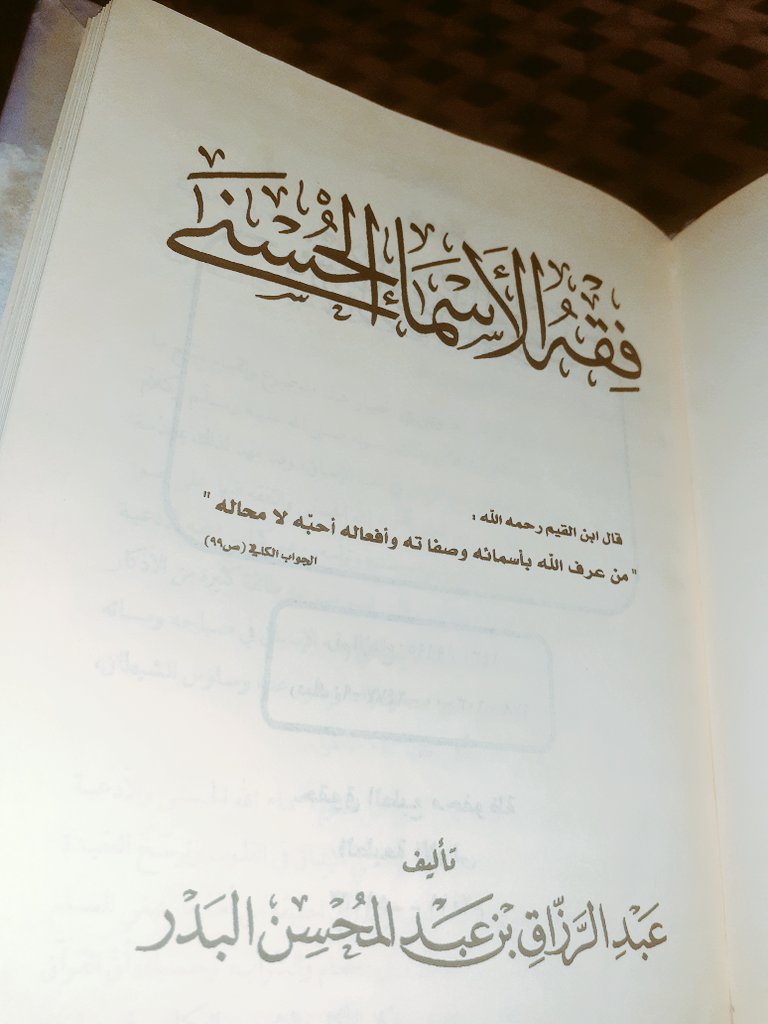 فِقْهُ الأَسْمَاءِ الحُسْنَى
قال ابن القيم رحمه الله :
"من عرف الله بأسمائه وصفاته وأفعاله أحبّه لا محاله"
الجواب الكافي (ص٩٩)
تأليف
عَبْدِ الرَّزَّاقِ بْنِ عَبْدِ المُحْسِنِ البَدْر